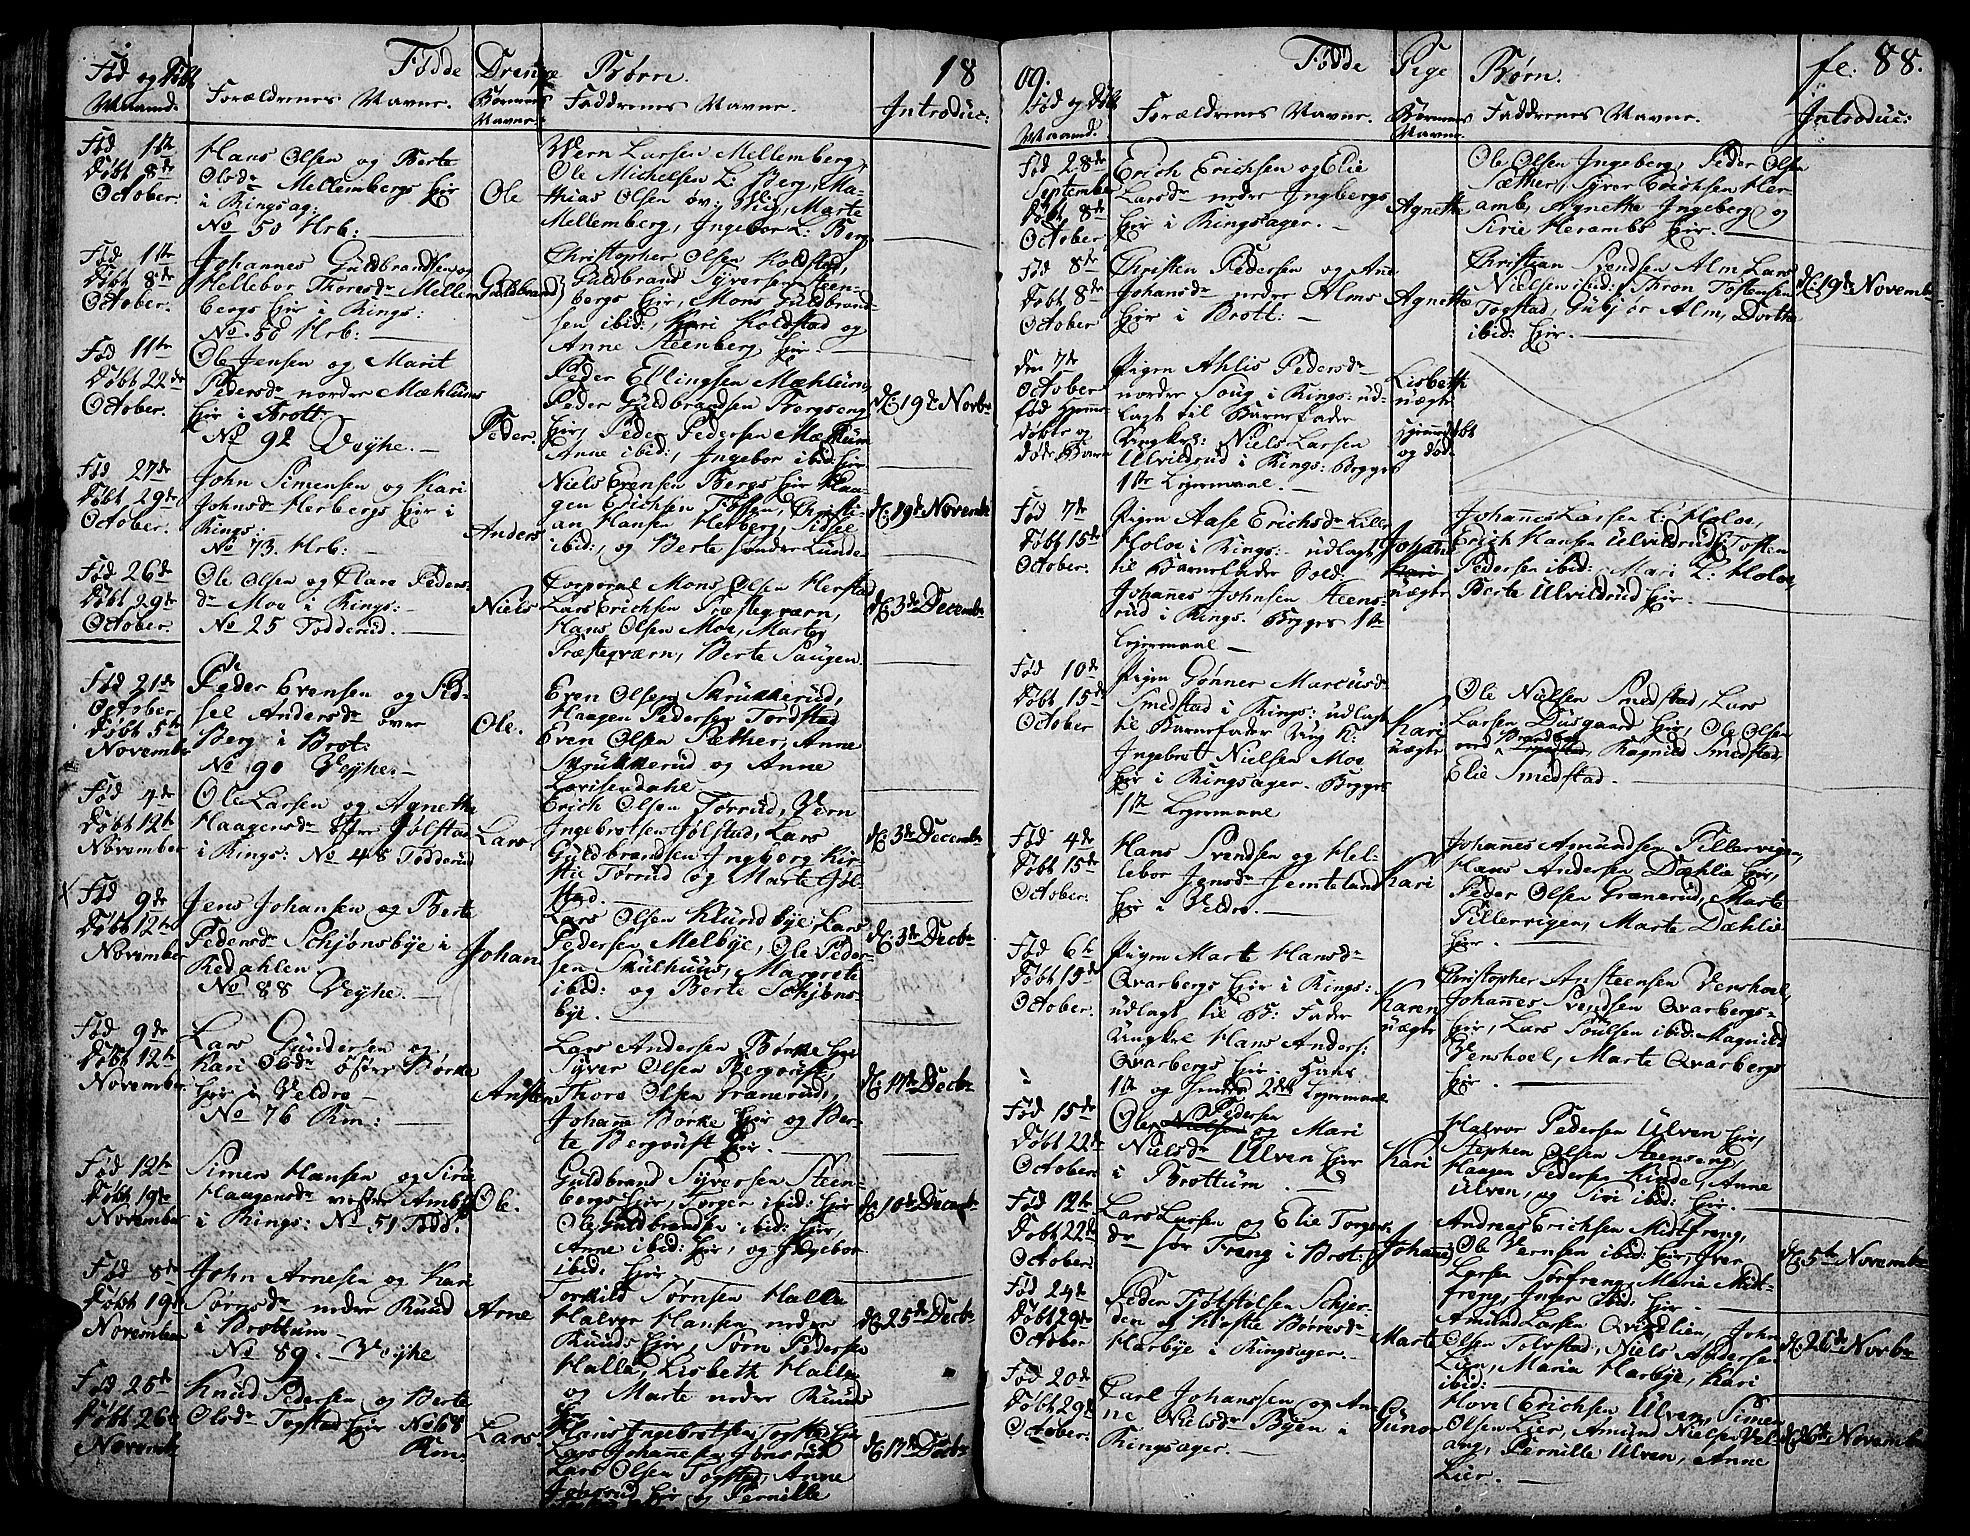 Fødde Drenge Børn.
18
Fød og Døbt
Maaned.
Forældrenes Navne.
Børnenes
Navne.
Faddrenes Navne.
Introduc:
Fød 1te
Døbt 8de
October.
Hans Olsen og Berte
Olsdr Mellembergs Eje
i Ringsag:
No 50 Hrb:
Ole
Wern Larsen Mellemberg,
Ole Michelsen L: Berg, Ma-
thias Olsen øv: Wig, Marte
Mellemberg, Ingebor L: Berg
Fød 1te
Døbt 8de
October.
Johannes Guldbrandsen og
Hellebor Thoresdr Mellem
bergs Ejer i Rings:
No 50 Hrb:
Guldbrand
Christopher Olsen Koldstad,
Guldbrand Syversen Steen-
bergs Ejer, Mons Guldbrand-
sen ibid:, Kari Koldstad og
Anne Steenberg Ejer.
Fød 11te
Døbt 22de
October.
Ole Jensen og Marit
Pedersdr nordre Mæhlums
Ejer i Brott:
No 92 Vejhe.
Peder.
Peder Ellingsen Mæhlum,
Peder Guldbrandsen Borgseng
Ejer, Peder Pedersen Mæhlum
Anne ibid:, Ingebor ibid: Ejer
d: 19de Novbr
Fød 27de
Døbt 29de
October.
John Simensen og Kari
Johnsdr Herbergs Ejer i
Rings:
No 73. Hrb:
Anders
Niels Evensen Bergs Ejer Haa-
gen Erichsen Fossen, Christi-
an Hansen Herberg, Sidsel
ibid:, og Berte søndre Lunde
d: 19de Novembr
Fød 26de
Døbt 29de
October.
Ole Olsen og Clare Peders-
dr Moe i Rings:
No 25 Todderud.
Niels
Corporal Mons Olsen Herstad
Lars Erichsen Præsteqværn,
Hans Olsen Moe, Marte
Præsteqværn, Berte Saugen
d: 3de Decembr
Fød 21de
October
Døbt 5te
November
Peder Evensen og Sid-
sel Andersdr over
Berg i Brot:
No 90 Vejhe.
Ole.
Even Olsen Skrukkerud,
Haagen Pedersen Tordstad
Even Olsen Sæther, Anne
Skrukkerud og Anne
Lovisendahl
Fød 4de
Døbt 12te
November
Ole Larsen og Agnethe
Haagensdr østre Jølstad
i Rings: No 48 Todderud
Lars
Erich Olsen Torrud, Wern
Ingebrotsen Jølstad, Lars
Guldbrandsen Ingberg Kir-
stie Torrud og Marte Jøl-
stad.
d: 3de Decembr
Fød 9de
Døbt 12te
November
Jens Johansen og Berte
Pedersdr Schjønsbye i
Redahlen
No 88 Vejhe.
Johan
Lars Olsen Klundbye, Lars
Pedersen Melbye, Ole Peder-
sen Skulhuus, Margrete
ibid: og Berte Schjøns-
bye.
d: 3de Decbr
Fød 9de
Døbt 12te
November
Lars Gundersen og
Kari Olsdr østre Børke
Ejer i Veldre
No 76 Rm:
Ansten
Lars Andersen Børke Ejer
Syver Olsen Bergqust,
Thore Olsen Granerud,
Johanne Børke Ejer og Ber-
te Bergqust Ejer.
d: 17de Decbr
Fød 12te
Døbt 19de
November
Simen Hansen og Sirie
Haagensdr vestre Ambli
i Rings: No 51 Todd:
Ole.
Guldbrand Syversen Steen-
bergs Ejer, Torger ibid: Ejer
Ole Guldbrandsen ibid: Ejer,
Anne ibid: Ejer, og Ingebor
ibid: Ejer
d: 10de Decembr
Fød 8de
Døbt 19de
November
John Arnesen og Kari
Sørnsdr nedre Ruud
i Brottum
No 89. Vejhe
Arne
Torkild Sørnsen Halle
Halvor Hansen nedre
Ruuds Ejer, Sørn Pedersen
Halle, Lisbeth Halle
og Marte nedre Ruud
d: 25de Decbr
Fød 25de
Døbt 26de
Novembr
Knud Pedersen og Berte
Olsdr Togstad Ejer No 68
Rm.
Lars
Hans Ingebrotsen Togstad Ejer
Lars Johannesen Jønsrud
Lars Olsen Togstad, Anne
Jønsrud Ejer og Pernille
d: 17de Decbr
09.
Fødde Pige Børn.
fc: 88.
Fød og Døbt
Maaned.
Forældrenes Navne.
Børnenes
Navne.
Faddrenes Navne.
Introduc:
Fød 28de
September
Døbt 8de
October.
Erich Erichsen og Elie
Larsdr nedre Ingbergs
Ejer i Ringsager.
Agnethe
Ole Olsen Ingeberg, Peder Olsen
Sæther, Syver Erichsen Her-
amb, Agnethe Ingeberg og
Sirie Herambs Ejer.
Fød 8de
Døbt 8de
October
Christen Pedersen og Ane
Johansdr nedre Alms
Ejer i Brott:
Agnethe
Christian Svendsen Alm Lars
Nielsen ibid: Thron Tostensen
Togstad, Gubjør Alm, Dorthe
ibid: Ejer.
d: 19de Novembr
den 7de
October
fød hjemme
døbte og
døde Barn
Pigen Ahlis Pedersdr
nordre Soug i Rings: ud-
lagt til Barnefader
Ungkrl: Niels Larsen
Ulvildrud i Rings: Begges
1te Lejermaal.
Lisbeth
uægte
hjemdøbt
og død.
Fød 7de
Døbt 15de
October.
Pigen Aase Erichsdr Lille
Holoe i Rings: udlagt
til Barnefader Sold:
Johanes Johnsen Steens-
rud i Rings. Begges 1te
Lejermaal
Johane
Kari
uægte
Johanes Larsen L: Holoe,
Erich Hansen Ulvildrud, Tosten
Pedersen ibid: Mari L: Holoe,
Berte Ulvildrud Ejer.
Fød 10de
Døbt 15de
October
Pigen Gønner Marcusdr
Smedstad i Rings: udlagt
til Barnefader Ung K:
Ingebrot Nielsen Moe
Ejer i Ringsager. Begges
1te Lejermaal
Kari
uægte
Ole Nielsen Smedstad, Lars
Larsen Duegaard Ejer, Ole Olsen
Ragnild Smedstad
Elie Smedstad.
Fød 4de
Døbt 15de
October.
Hans Svendsen og Hel-
lebor Jensdr Jemteland
Ejer i Veldre.
Kari
Johanes Amundsen Pillervigen,
Hans Andersen Dæhlie Ejer,
Peder Olsen Granerud, Marte
Pillervigen, Marte Dæhlie
Ejer.
Fød 6te
Døbt 15de
October.
Pigen Marte Hansdr
Qvarbergs Ejer i Rings:
udlagt til B: Fader
Ungkrl Hans Anders:
Qvarbergs Ejer. Hans
1te og hendes 2det Lejermaal
Karen
uægte
Christopher Ansteensen Venshoel,
Johannes Svendsen Qvarbergs
Ejer, Lars Poulsen ibid: Magnild
Venshoel, Marte Qvarbergs
Ejer.
Fød 15de
Døbt 22de
October.
Pedersen
Ole Nielsen og Mari
Nielsdr Ulven Ejer
i Brottum.
Kari
Halvor Pedersen Ulven Ejer,
Stephen Olsen Steenseng,
Haagen Pedersen Kinde, Anne
Ulven, og Siri ibid: Ejer.
Fød 12te
Døbt 22de
October.
Lars Larsen og Elie Torgers-
dr sør Freng i Brot:
Johane
Andreas Erichsen Midtfreng,
Ole Vernsen ibid: Ejer, Iver
Larsen Sørfreng, Marie Midt-
freng, Inger ibid: Ejer.
d: 5te Novembr
Fød 24de
Døbt 29de
October
Peder Tjøtstolsen Schjer-
den og Kirstie Børresdr
Harbye i Ringsager.
Marte
Amund Larsen Qvislien, John
Olsen Tolvstad, Niels Andersen
Lien, Maria Harbye, Kari
ibid:
d: 26de Novbr
Fød 20de
Døbt 29de
October.
Carl Johanssen og An-
ne Nielsdr Bøen i
Ringsager.
Gunor
Hovel Erichsen Ulven, Simen
Olsen Lier, Amund Nielsen Vel-
ang, Pernille Ulven, Anne
Lier.
d: 26de Novembr